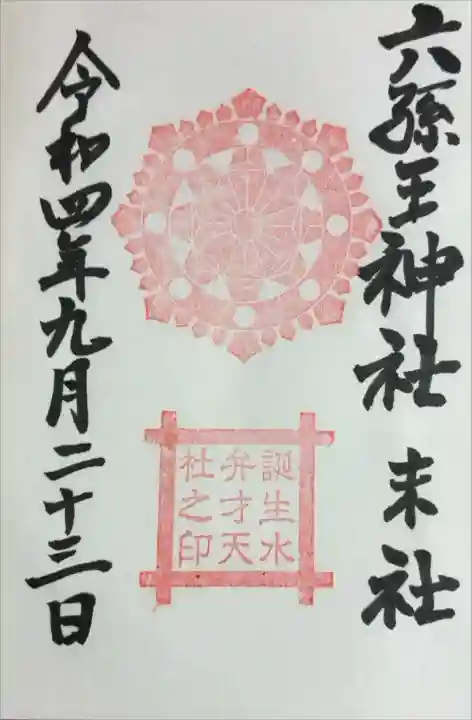 六孫王神社 末社
誕生水
弁才天
社之印
令和四年九月二十三日